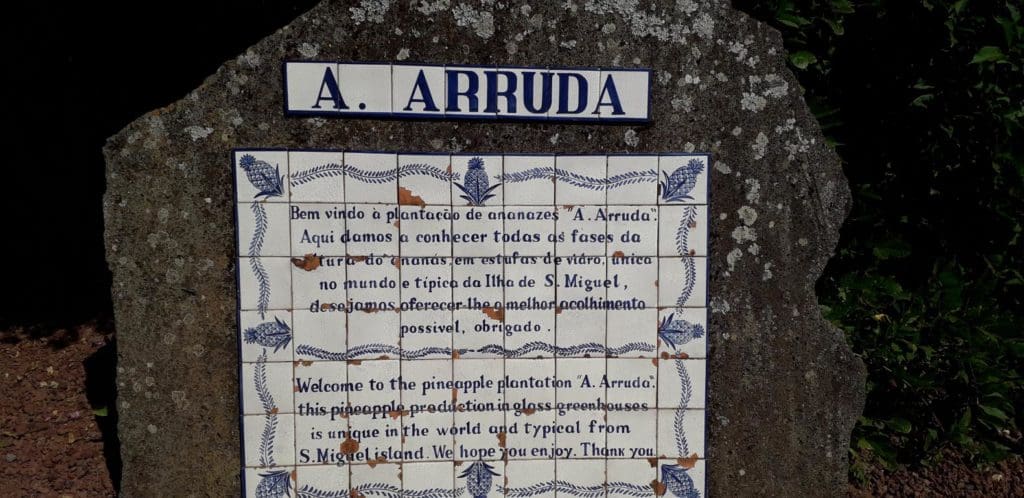 A. ARRUDA
Bem vindo à plantação de ananazes "A. Arruda".
Aqui damos a conhecer todas as fases da
tura do ananás, em estufas de vidro, única
no mundo e típica da Ilha de S. Miguel,
desejamos oferecer-lhe o melhor acolhimento
possivel, obrigado.
Welcome to the pineapple plantation "A. Arruda".
this pineapple production in glass greenhouses
is unique in the world and typical from
S. Miguel island. We hope you enjoy. Thank you.